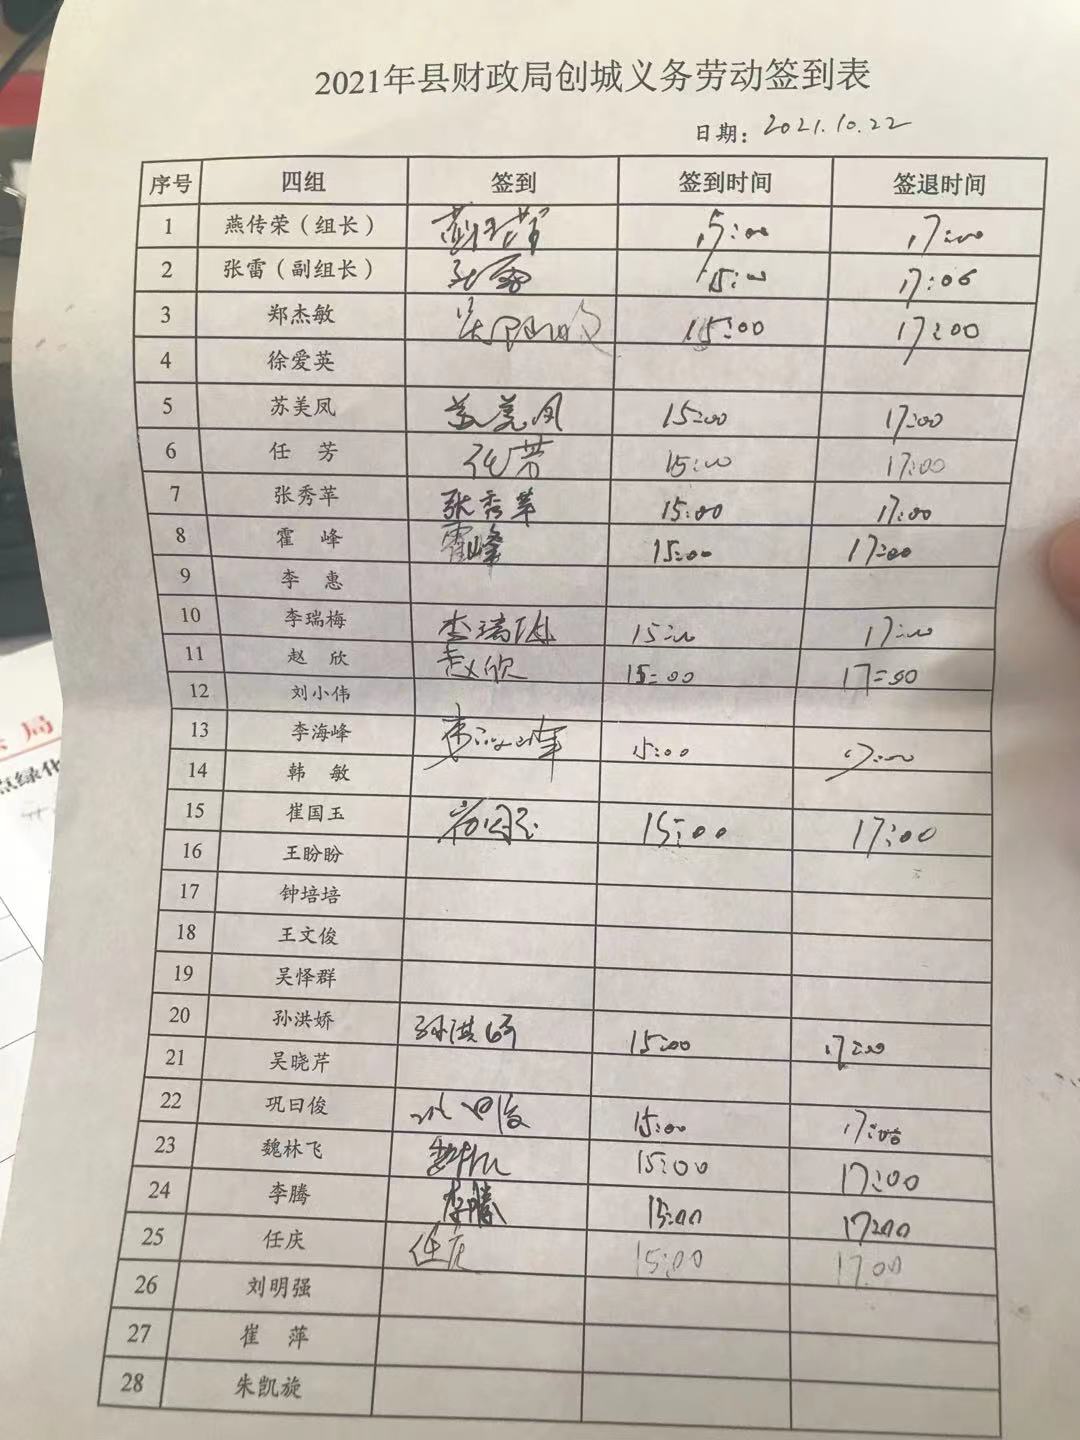 2021年县财政局创城义务劳动签到表
日期: 2021.10.22
序号 四组 签到 签到时间 签退时间
1 燕传荣（组长） 15:00 17:00
2 张雷（副组长） 张雷 15:00 17:00
3 郑杰敏 15:00 17:00
4 徐爱英
5 苏美凤 苏美凤 15:00 17:00
6 任 芳 任芳 15:00 17:00
7 张秀苹 张秀苹 15:00 17:00
8 霍 峰 霍峰 15:00 17:00
9 李 惠
10 李瑞梅 李瑞梅 15:00 17:00
11 赵 欣 赵欣 15:00 17:00
12 刘小伟
13 李海峰 李海峰 15:00 17:00
14 韩 敏
15 崔国玉 崔国玉 15:00 17:00
16 王盼盼
17 钟培培
18 王文俊
19 吴怿群
20 孙洪娇 孙洪娇 15:00 17:00
21 吴晓芹
22 巩日俊 巩日俊 15:00 17:00
23 魏林飞 15:00 17:00
24 李腾 李腾 15:00 17:00
25 任庆 任庆 15:00 17:00
26 刘明强
27 崔 萍
28 朱凯旋
局
绿化